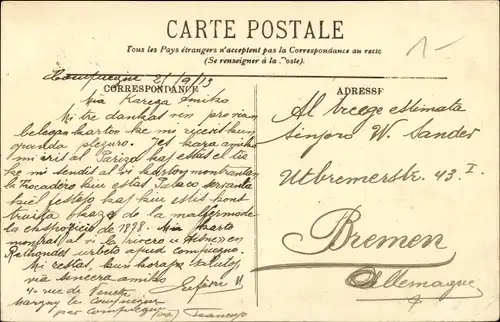 CARTE POSTALE
Tous les Pays étrangers n'acceptent pas la Correspondance au recto
(Se renseigner à la Poste).
Compiegne 21/9/13
CORRESPONDANCE
ADRESSE
Mia Karega Amiko
Mi tre dankas vin pro vian
belegan karton ke mi ricevis kun
granda plezuro. Jes kara amiko
mi estis al Parizo kaj estas el tie
ke mi sendis al vi karton montrantan
la Trocadero kiu estas Palaco servanta
kiel festejo kaj kiu estis kon
truita okaze de la malfermode
la ekspozicio de 1898. Mia karto
montras al vi la rivero
Rethondes urbeto apud Compiegne.
Mi restas, kun koraj salutoj
via sincera amiko
4 rue de
Margny les Compiègne
par Compiègne (Oise)
Al treege estimata
Sinjoro W. Sander
Utbremerstr. 43 I.
Bremen
Allemagne